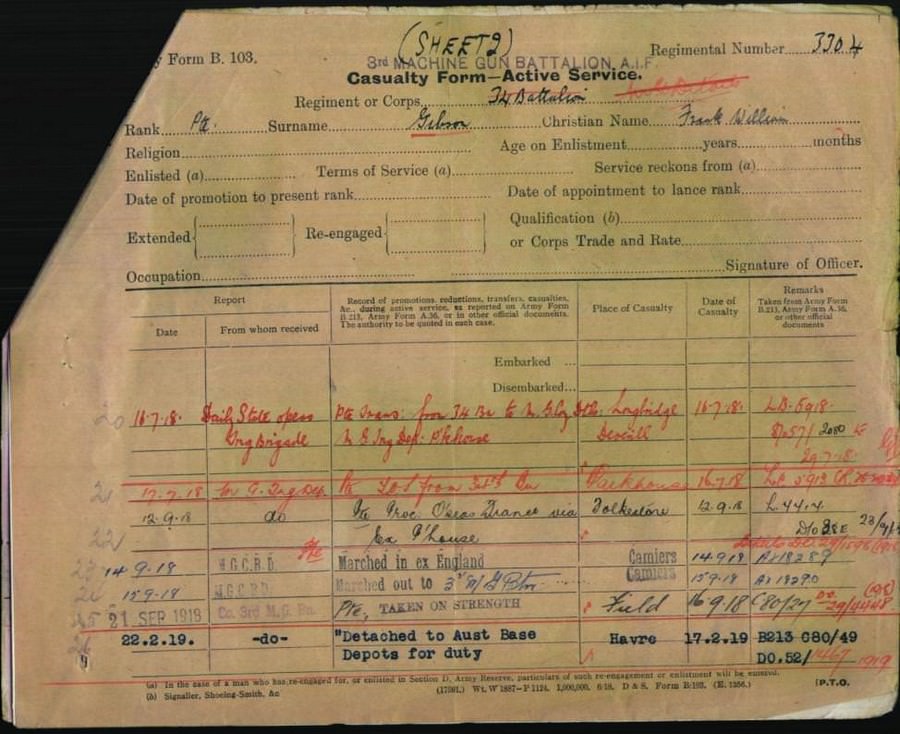 (SHEET 2)
y Form B. 103.
Regimental Number 3304
3rd MACHINE GUN BATTALION, A.I.F.
Casualty Form—Active Service.
Regiment or Corps 34 Battalion
Rank Pte. Surname Gibson Christian Name Frank William
Religion Age on Enlistment years months
Enlisted (a) Terms of Service (a) Service reckons from (a)
Date of promotion to present rank Date of appointment to lance rank
Extended Re-engaged Qualification (b)
or Corps Trade and Rate
Occupation Signature of Officer.
Report
Date
From whom received
Record of promotions, reductions, transfers, casualties,
&c., during active service, as reported on Army Form
B.213, Army Form A.36, or in other official documents.
The authority to be quoted in each case.
Place of Casualty
Date of
Casualty
Remarks
Taken from Army Form
B.213, Army Form A.36,
or other official
documents
Embarked ...
Disembarked...
20 16.7.18. Daily State opens Pte Trans: from 34 Bn to M.G. Longbridge 16.7.18. LB. 5918.
Tng Brigade M G Tng Dep: P'khouse Deverill 2080
29.7.18.
21 17.7.18 M G. Tng Dep. Pte from Bn Parkhouse 16.7.18 5913
12.9.18 do Pte Proc. O'seas France via Folkestone 12.9.18 L. 4414
22 Ex P'house
23 14.9.18 M.G.C.B.D. Pte Marched in ex England Camiers 14.9.18 A 18289
24 15.9.18 M.G.C.B.D. Marched out to 3rd M G Btn Camiers 15.9.18 A 18290
25 21 SEP 1918 Co. 3rd M.G. Bn. Pte. TAKEN ON STRENGTH Field 16.9.18 C80/27
26 22.2.19. -do- "Detached to Aust Base Havre 17.2.19 B213 C80/49
Depots for duty DO.52/1467 1919
(a) In the case of a man who has re-engaged for, or enlisted in Section D, Army Reserve, particulars of such re-engagement or enlistment will be entered.
(b) Signaller, Shoeing-Smith, &c (17091.) Wt. W 1887—P 1124. 1,000,000. 6/18. D & S. Form B/103. (E. 1256.) [P.T.O.